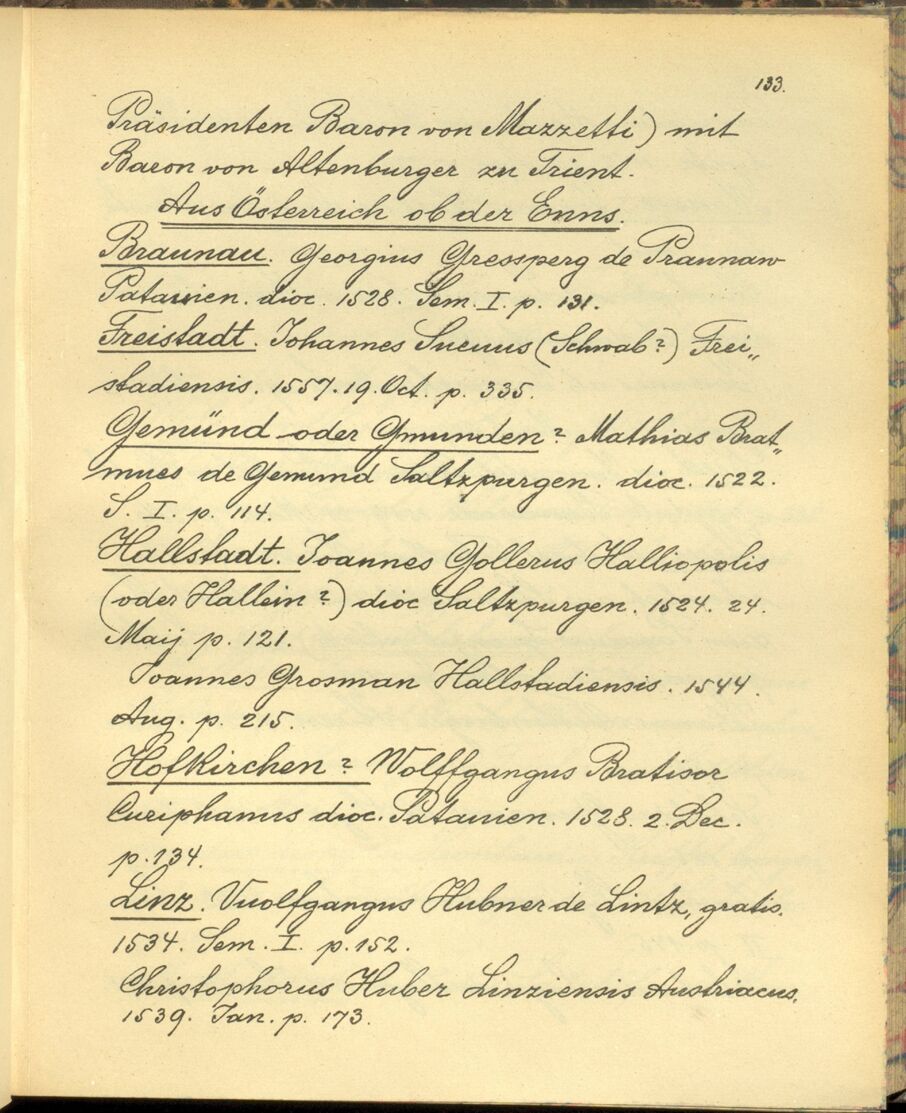 133.
Präsidenten Baron von Mazzetti) mit
Baron von Altenburger zu Trient.
Aus Österreich ob der Enns.
Braunau. Georgius Gressperg de Praunaw
Patauien. dioc. 1528. Sem. I. p. 131.
Freistadt. Johannes Sueuus (Schwab?) Frei„
stadiensis. 1557. 19. Oct. p. 335.
Gemünd oder Gmunden? Mathias Brat„
mues de Gemund Saltzpurgen. dioc. 1522.
S. I. p. 114.
Hallstadt. Joannes Gollerus Halliopolis
(oder Hallein?) dioc Saltzpurgen. 1524. 24.
Maij p. 121.
Joannes Grosman Hallstadiensis. 1544.
Aug. p. 215.
Hofkirchen? Wolffgangus Bratisor
Curiphanus dioc. Patauien. 1528. 2. Dec.
p. 134.
Linz. Vuolfgangus Hubner de Lintz, gratis.
1534. Sem. I. p. 152.
Christophorus Huber Linziensis Austriacus.
1539. Jan. p. 173.